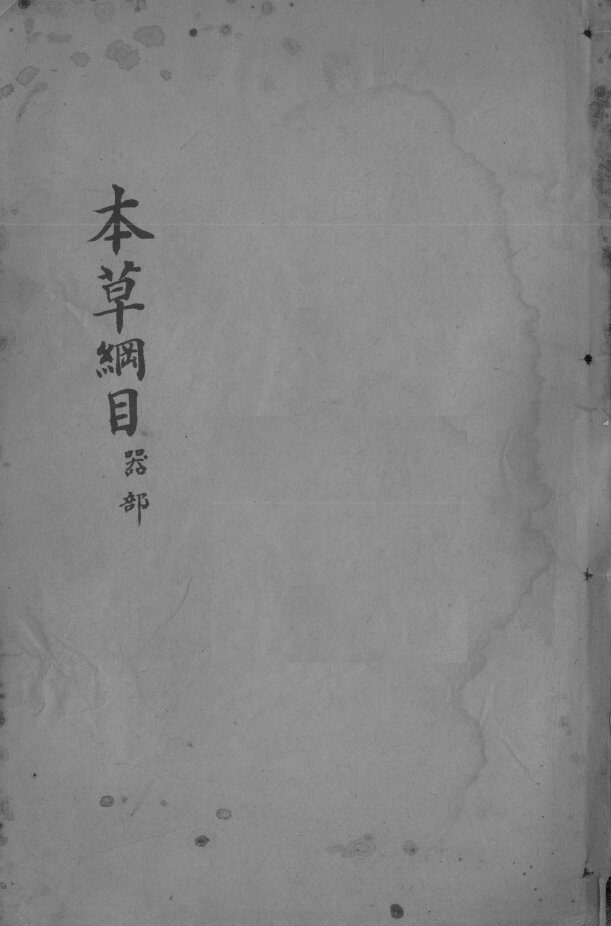 本草綱目
器部